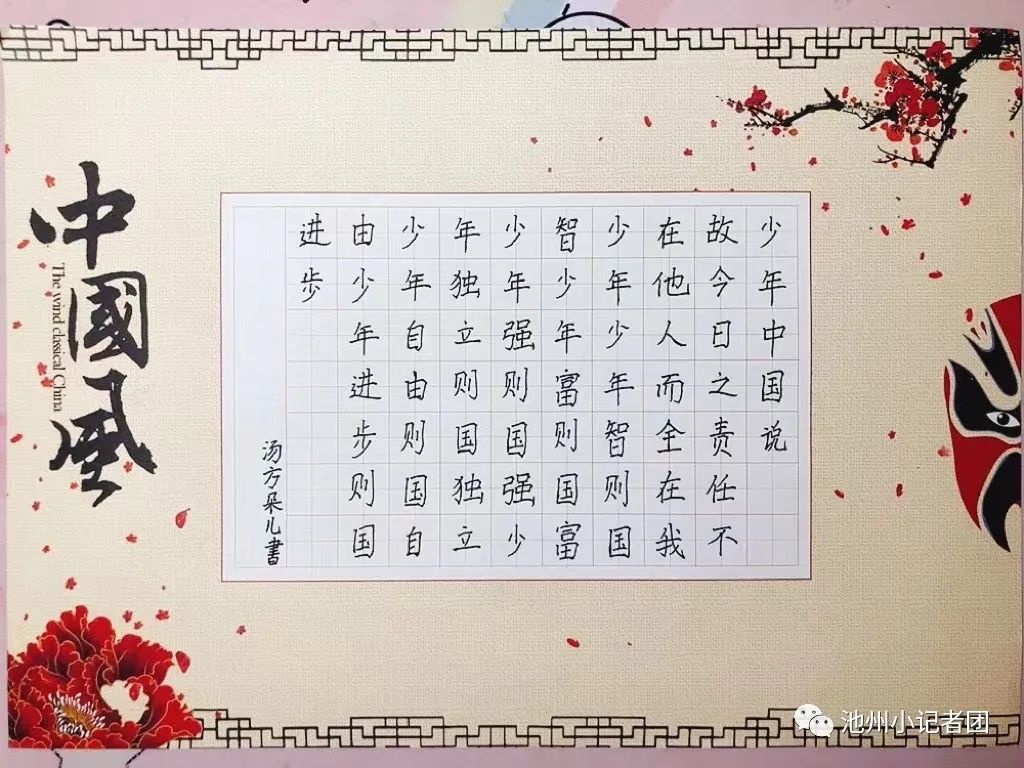 少年中国说
故今日之责任不
在他人而全在我
少年少年智则国
智少年富则国富
少年强则国强少
年独立则国独立
少年自由则国自
由少年进步则国
进步
汤方朵儿書
中國風
The wind classical China
池州小记者团